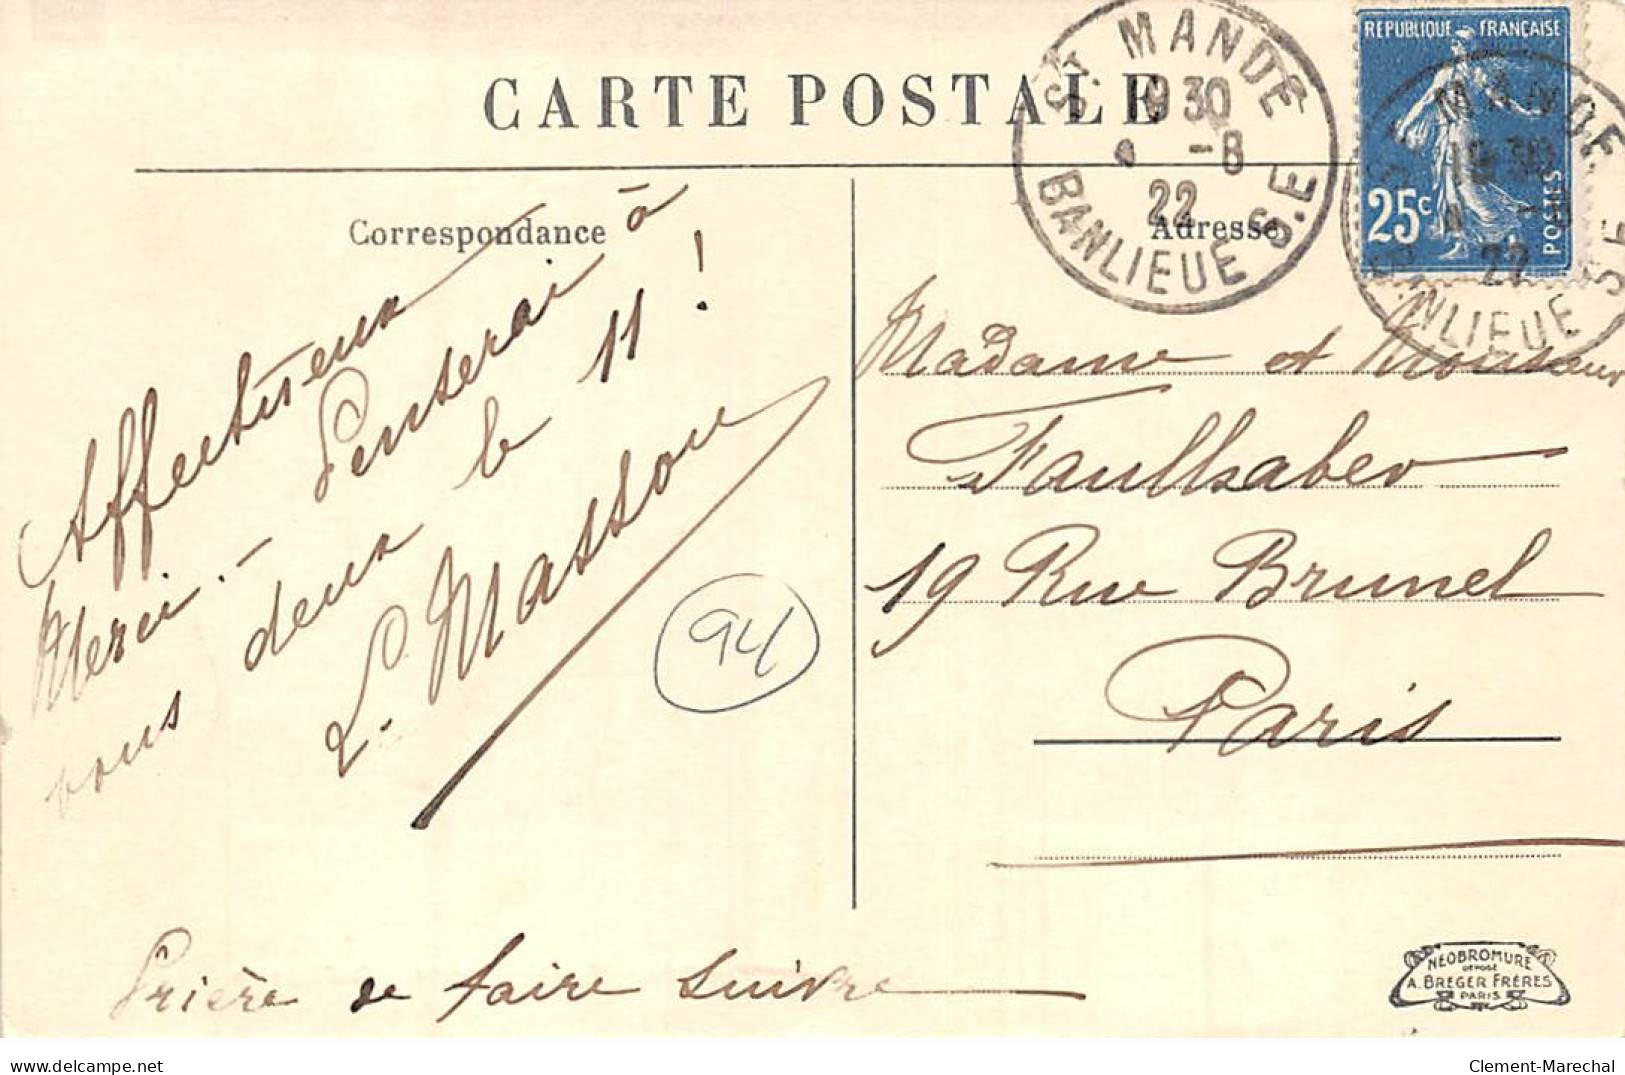 CARTE POSTALE
Correspondance
Adresse
ST. MANDÉ
9 30
-8
22
BANLIEUE S.E
REPUBLIQUE FRANÇAISE
25c
POSTES
MANDE
19 30
22
NLIEUE S E
Affectueux
Merci. - Penserai à
vous deux le 11 !
L. Masson
94
Madame et Monsieur
Faulhaber
19 Rue Brunel
Paris
Prière de faire suivre
NÉOBROMURE
DÉPOSÉ
A. BREGER FRÈRES
PARIS
www.delcampe.net
Clement-Marechal